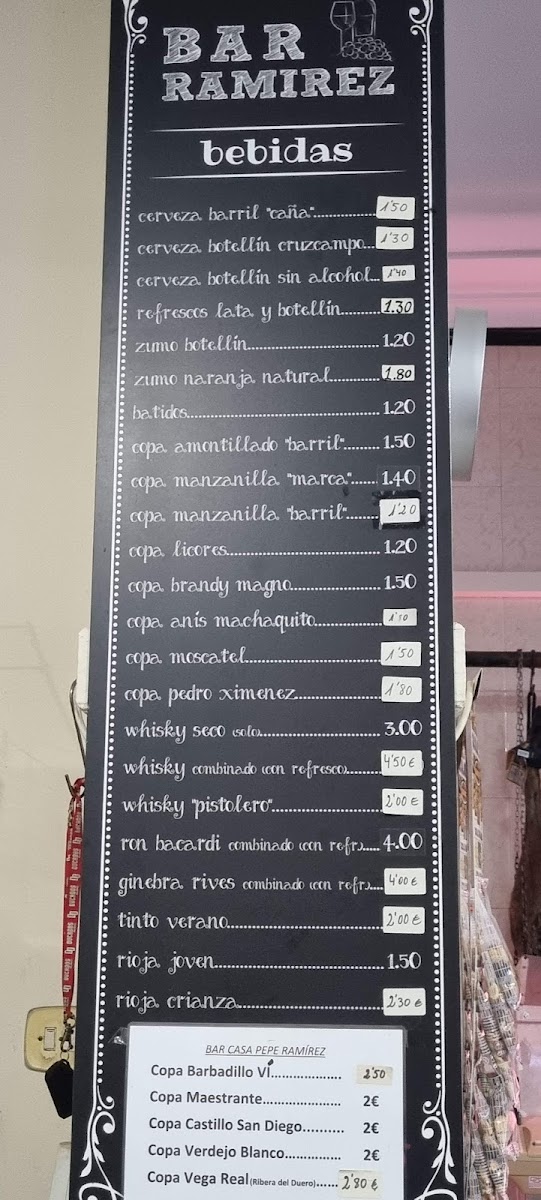 BAR
RAMIREZ
bebidas
cerveza barril "caña"............1'50
cerveza botellín cruzcampo...1'30
cerveza botellín sin alcohol...1'40
refrescos lata y botellín.........1.30
zumo botellín.........................1.20
zumo naranja natural............1.80
batidos....................................1.20
copa amontillado "barril".......1.50
copa manzanilla "marca"......1.40
copa manzanilla "barril".......1'20
copa licores............................1.20
copa brandy magno................1.50
copa anís machaquito............1'10
copa moscatel........................1'50
copa pedro ximenez...............1'80
whisky seco (solo)....................3.00
whisky combinado (con refresco)......4'50€
whisky "pistolero"...................2'00€
ron bacardi combinado (con refr.)....4.00
ginebra rives combinado (con refr.)...4'00€
tinto verano............................2'00€
rioja joven..............................1.50
rioja crianza...........................2'30€
BAR CASA PEPE RAMÍREZ
Copa Barbadillo VI................... 2'50
Copa Maestrante..................... 2€
Copa Castillo San Diego.......... 2€
Copa Verdejo Blanco............... 2€
Copa Vega Real(Ribera del Duero)...... 2'80€